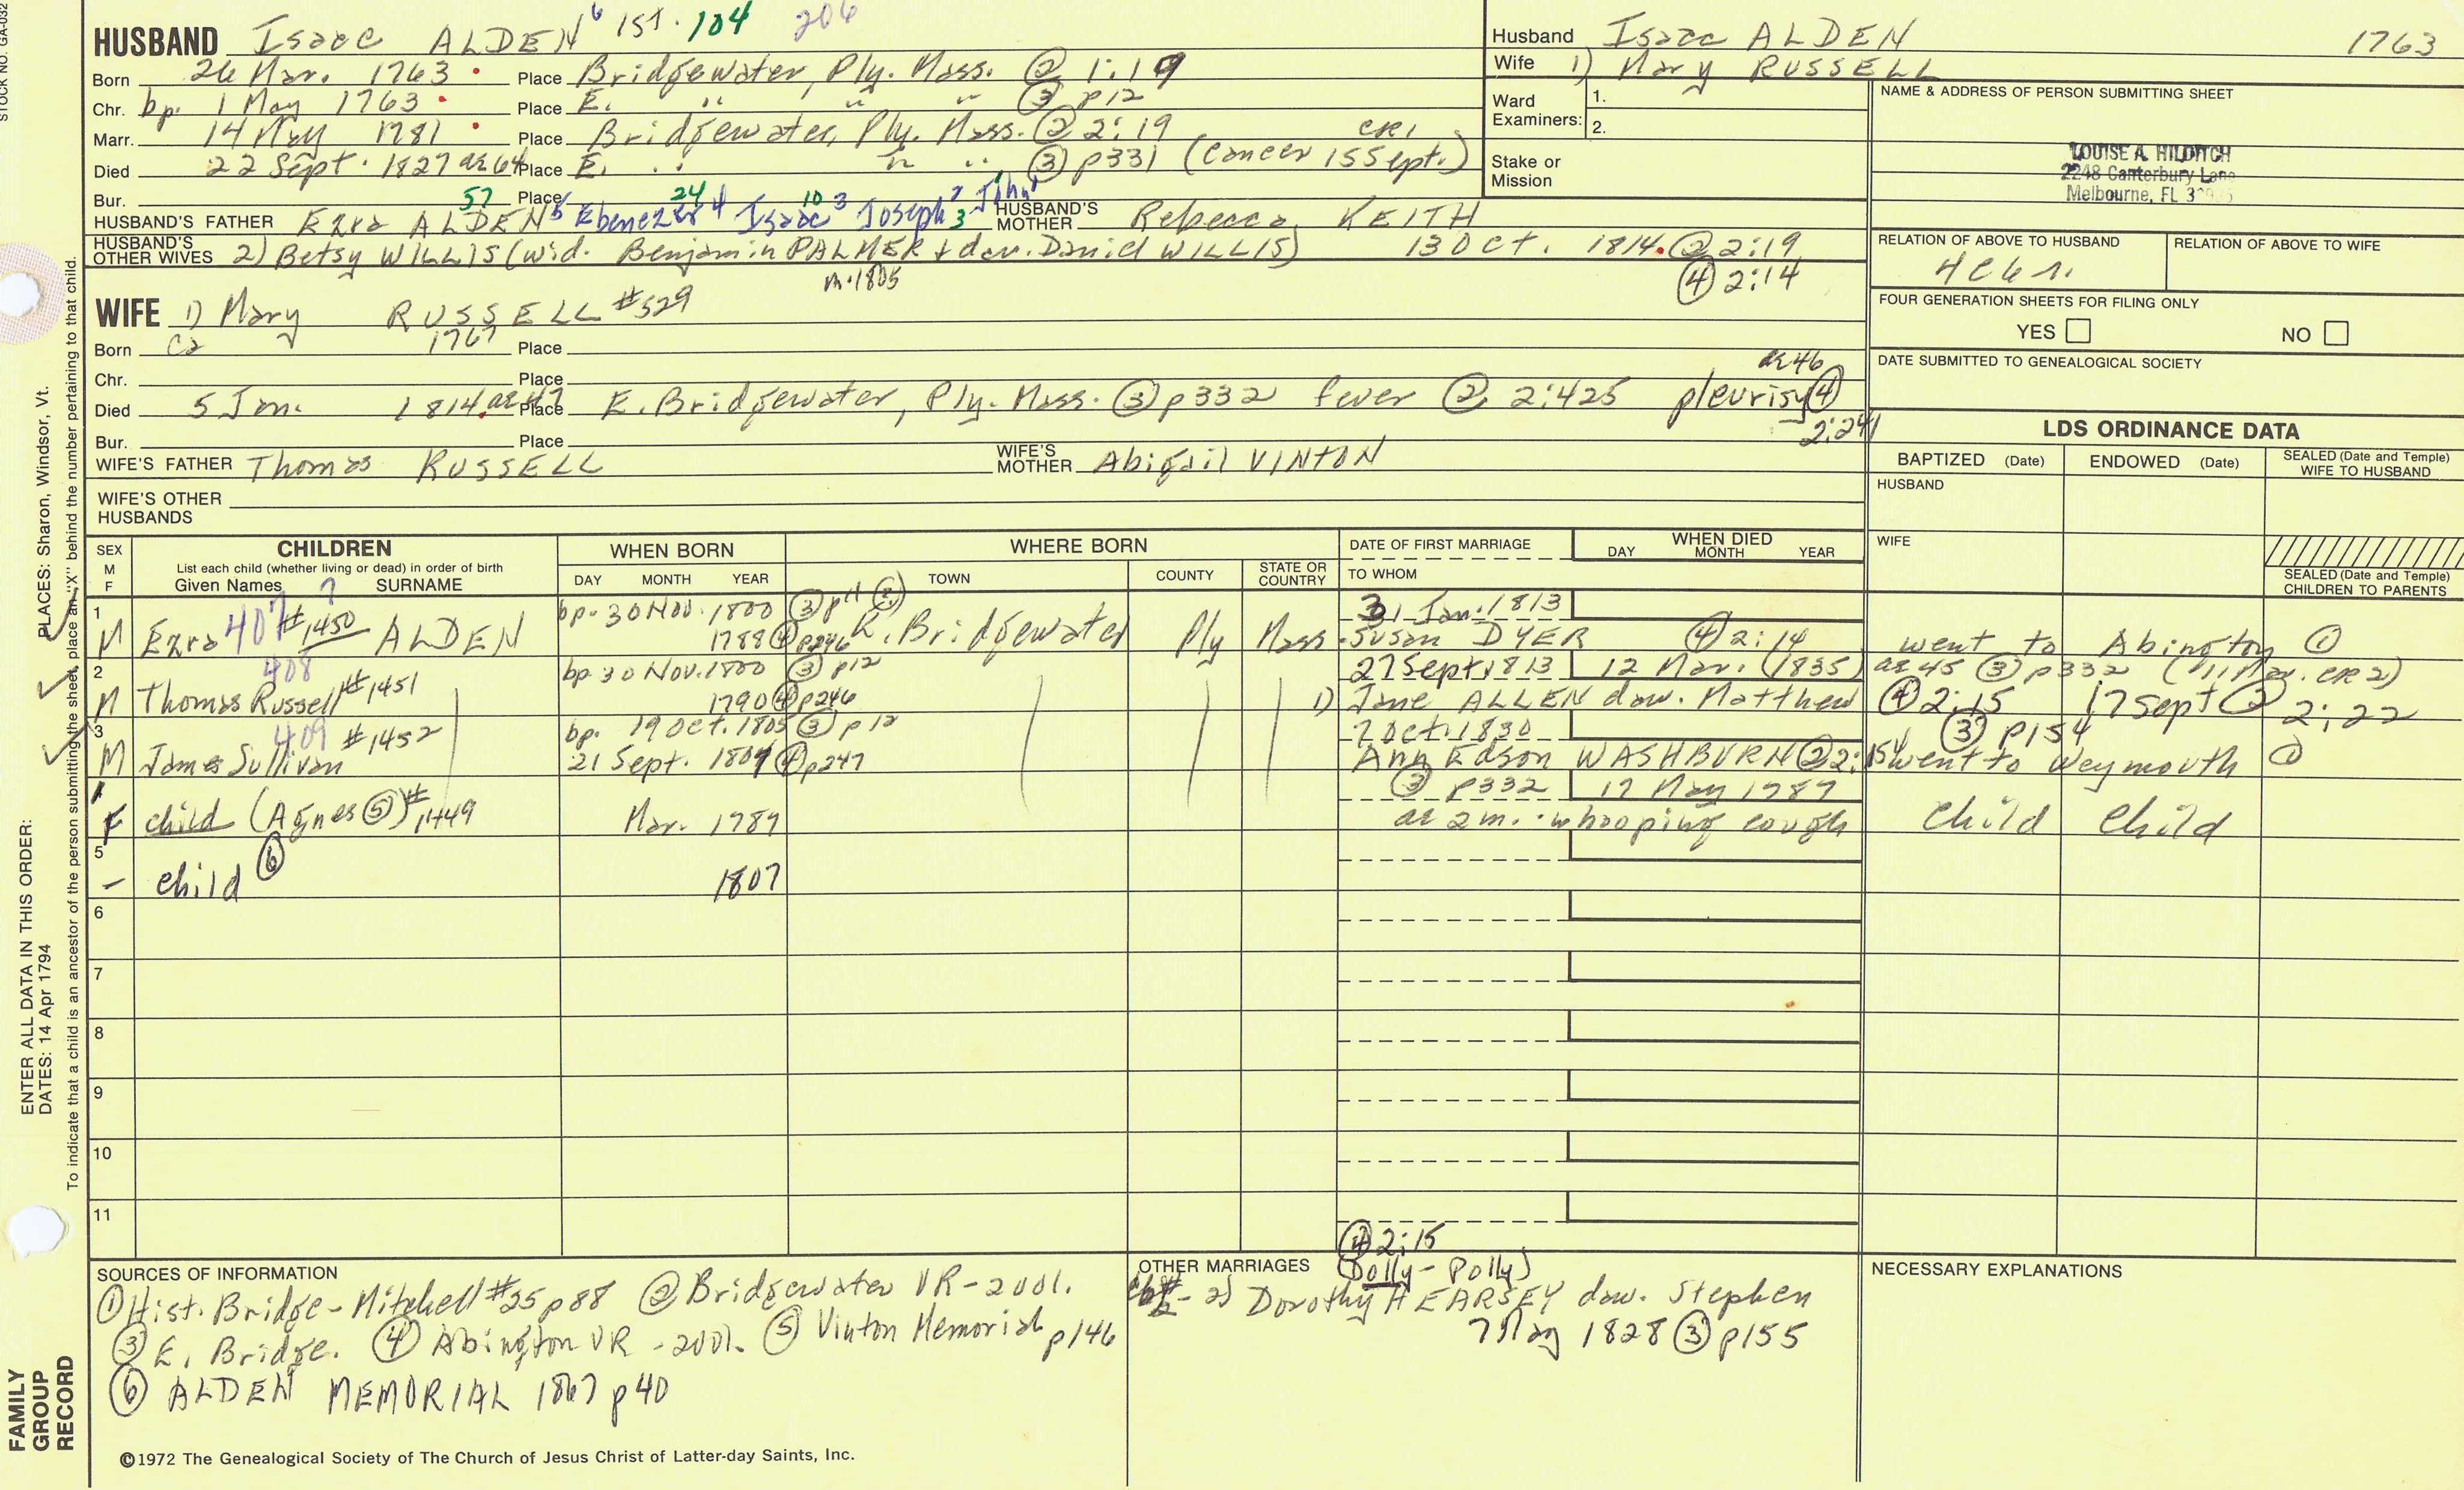 STOCK NO. GA-032
HUSBAND Isaac ALDEN 6 1st. 104 206
Born 26 Mar. 1763 Place Bridgewater, Ply. Mass. ② 1:19
Chr. bp. 1 May 1763 Place E. " " " ③ p12
Marr. 14 May 1781 Place Bridgewater, Ply. Mass. ② 2:19
Died 22 Sept. 1827 ae 64 Place E. " " " ③ p331 (Cancer 15 Sept.) CR1
Bur. Place
57 24 10 3
HUSBAND'S FATHER Ezra ALDEN 5 Ebenezer 4 Isaac 3 Joseph 2 John 1 HUSBAND'S MOTHER Rebecca KEITH
HUSBAND'S OTHER WIVES 2) Betsy WILLIS (wid. Benjamin PALMER + dau. Daniel WILLIS) 13 Oct. 1814. ② 2:19
m. 1805 ④ 2:14
WIFE 1) Mary RUSSELL #529
Born Ca 1767 Place
Chr. Place
Died 5 Jan. 1814. ae 47 Place E. Bridgewater, Ply. Mass. ③ p332 fever ② 2:425 ae 46 pleurisy ④ 2:241
Bur. Place
WIFE'S FATHER Thomas RUSSELL WIFE'S MOTHER Abigail VINTON
WIFE'S OTHER HUSBANDS
Husband Isaac ALDEN 1763
Wife 1) Mary RUSSELL
Ward Examiners: 1.
2.
Stake or Mission
NAME & ADDRESS OF PERSON SUBMITTING SHEET
LOUISE A. HILDITCH
2248 Canterbury Lane
Melbourne, FL
RELATION OF ABOVE TO HUSBAND RELATION OF ABOVE TO WIFE
FOUR GENERATION SHEETS FOR FILING ONLY
YES NO
DATE SUBMITTED TO GENEALOGICAL SOCIETY
LDS ORDINANCE DATA
BAPTIZED (Date) ENDOWED (Date) SEALED (Date and Temple) WIFE TO HUSBAND
HUSBAND
WIFE
SEALED (Date and Temple) CHILDREN TO PARENTS
SEX M F
CHILDREN
List each child (whether living or dead) in order of birth
Given Names SURNAME 7
WHEN BORN
DAY MONTH YEAR
WHERE BORN
TOWN COUNTY STATE OR COUNTRY
DATE OF FIRST MARRIAGE
TO WHOM
WHEN DIED
DAY MONTH YEAR
1 bp. 30 Nov. 1800 ③ p11 31 Jan. 1813
M Ezra 407 #1450 ALDEN 1788 ④ p246 E. Bridgewater Ply Mass. Susan DYER ④ 2:14 went to Abington ①
2 408 bp 30 Nov. 1800 ③ p12 27 Sept. 1813 12 Mar. (1835) ae 45 ③ p332 (11 Mar. CR2)
M Thomas Russell #1451 1790 ④ p246 1) Jane ALLEN dau. Matthew ④ 2:15 17 Sept ② 2:22
3 409 bp. 19 Oct. 1805 ③ p12 7 Oct. 1830 ③ p154
M James Sullivan #1452 21 Sept. 1804 ④ p247 Ann Edson WASHBURN ② 2:15 went to Weymouth ①
③ p332 17 May 1789
F child (Agnes ⑤) #1449 Mar. 1789 ae 2 m. whooping cough child child
5
- child ⑥ 1807
6
7
8
9
10
11
SOURCES OF INFORMATION
① Hist. Bridge - Mitchell #25 p88 ② Bridgewater VR - 2vol.
③ E. Bridge. ④ Abington VR - 2vol. ⑤ Vinton Memorial p146
⑥ ALDEN MEMORIAL 1867 p40
OTHER MARRIAGES
④ 2:15
(Dolly - Polly)
#2 - 2) Dorothy HEARSEY dau. Stephen
7 May 1828 ③ p155
NECESSARY EXPLANATIONS
©1972 The Genealogical Society of The Church of Jesus Christ of Latter-day Saints, Inc.
PLACES: Sharon, Windsor, Vt.
ENTER ALL DATA IN THIS ORDER:
DATES: 14 Apr 1794
To indicate that a child is an ancestor of the person submitting the sheet, place an "X" behind the number pertaining to that child.
FAMILY GROUP RECORD